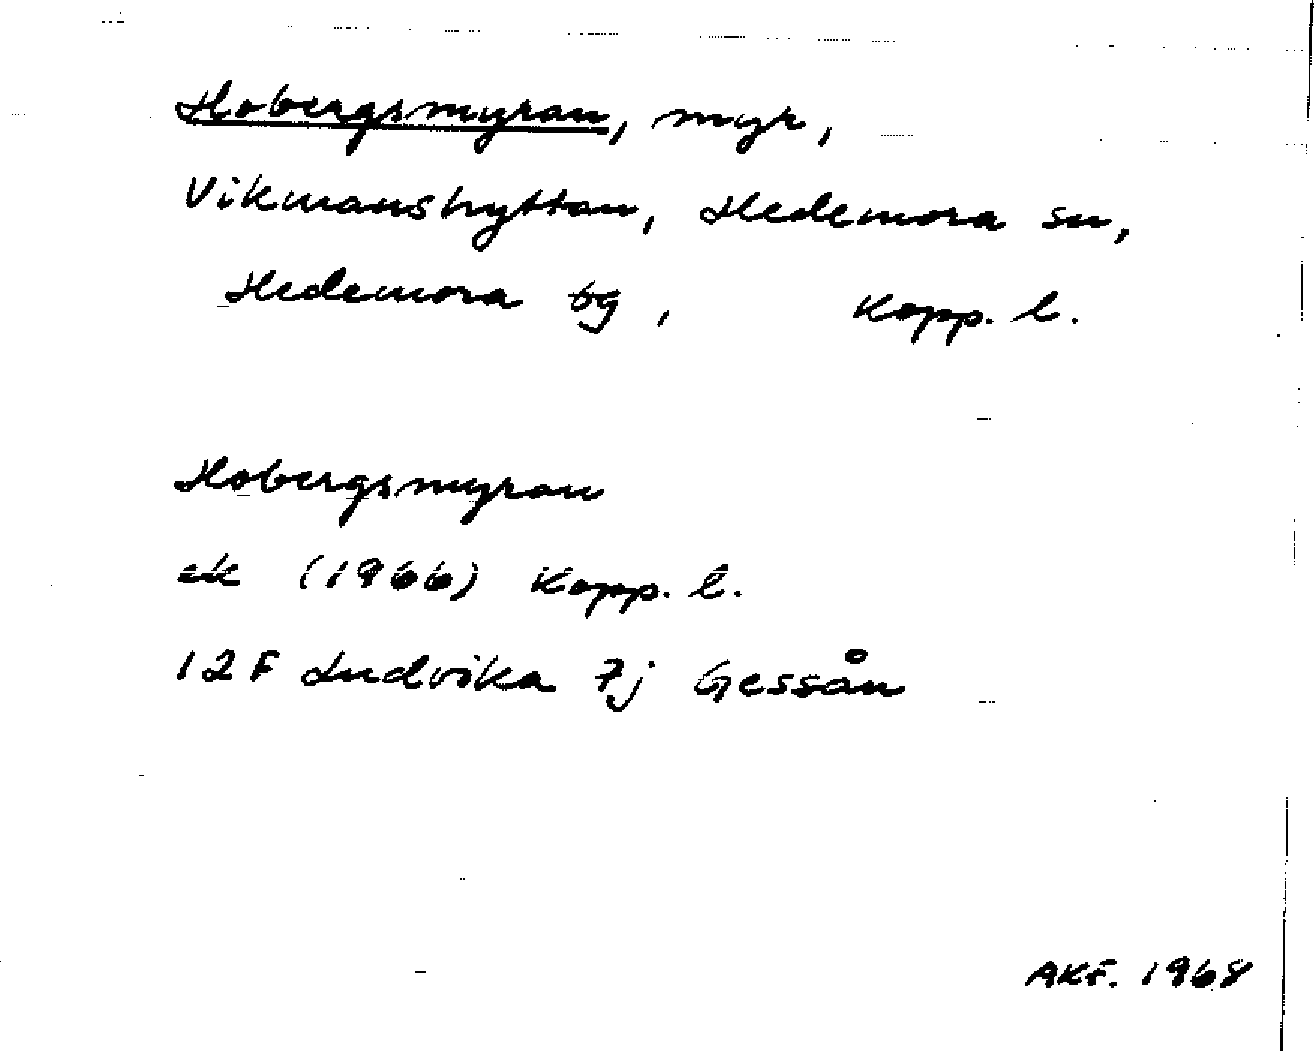 Hobergsmyran, myr,
Vikmanshyttan, Hedemora sn,
Hedemora bg, Kopp. l.
Hobergsmyran
ek (1966) Kopp. l.
12F Ludvika 7j Gessån
AKF. 1968